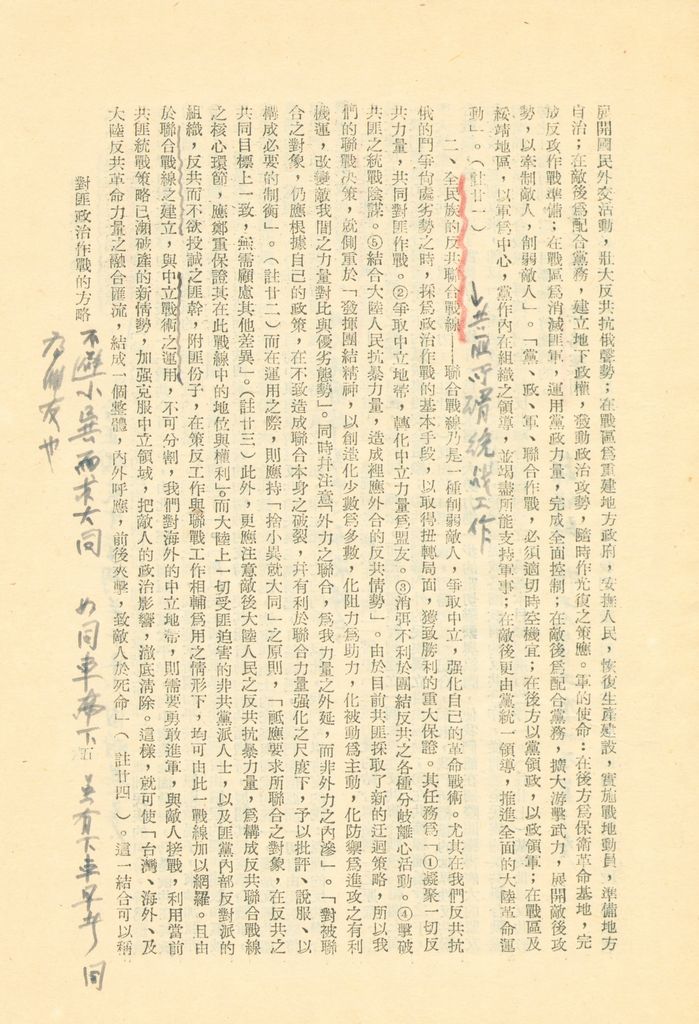 展開國民外交活動，壯大反共抗俄聲勢；在戰區爲重建地方政府，安撫人民，恢復生產建設，實施戰地動員，準備地方
自治；在敵後爲配合黨務，建立地下政權，發動政治攻勢，隨時作光復之策應。軍的使命：在後方爲保衛革命基地，完
成反攻作戰準備；在戰區爲消滅匪軍，運用黨政力量，完成全面控制；在敵後爲配合黨務，擴大游擊武力，展開敵後攻
勢，以牽制敵人，削弱敵人」。「黨、政、軍、聯合作戰，必須適切時空機宜；在後方以黨領政，以政領軍；在戰區及
綏靖地區，以軍爲中心，黨作內在組織之領導，並竭盡所能支持軍事；在敵後更由黨統一領導，推進全面的大陸革命運
動」。（註廿一）
二、全民族的反共聯合戰線——聯合戰線乃是一種削弱敵人，爭取中立，强化自己的革命戰術。尤其在我們反共抗
俄的鬥爭尙處劣勢之時，採爲政治作戰的基本手段，以取得扭轉局面，獲致勝利的重大保證。其任務爲「①凝聚一切反
共力量，共同對匪作戰。②爭取中立地帶，轉化中立力量爲盟友。③消弭不利於團結反共之各種分歧離心活動。④擊破
共匪之統戰陰謀。⑤結合大陸人民抗暴力量，造成裡應外合的反共情勢」。由於目前共匪採取了新的迂迴策略，所以我
們的聯戰決策，就側重於「發揮團結精神，以創造化少數爲多數，化阻力爲助力，化被動爲主動，化防禦爲進攻之有利
機運，改變敵我間之力量對比與優劣態勢」。同時幷注意「外力之聯合，爲我力量之外延，而非外力之內滲」。「對被聯
合之對象，仍應根據自己的政策，在不致造成聯合本身之破裂，幷有利於聯合力量强化之尺度下，予以批評、說服、以
構成必要的制衡」。（註廿二）而在運用之際，則應持「捨小異就大同」之原則，「祗應要求所聯合之對象，在反共之
共同目標上一致，無需顧慮其他差異」。（註廿三）此外，更應注意敵後大陸人民之反共抗暴力量，爲構成反共聯合戰線
之核心環節，應鄭重保證其在此戰線中的地位與權利。而大陸上一切受匪迫害的非共黨派人士，以及匪黨內部反對派的
組織，反共而不欲投誠之匪幹，附匪份子，在策反工作與聯戰工作相輔爲用之情形下，均可由此一戰線加以網羅。且由
於聯合戰線之建立，與中立戰術之運用，不可分割，我們對海外的中立地帶，則需要勇敢進軍，與敵人接戰，利用當前
共匪統戰策略已瀕破產的新情勢，加强克服中立領域，把敵人的政治影響，澈底淸除。這樣，就可使「台灣、海外、及
大陸反共革命力量之融合匯流，結成一個整體，內外呼應，前後夾擊，致敵人於死命」（註廿四）。這一結合可以稱
對匪政治作戰的方略
共匪所謂統戰工作
不避小異而求大同
為朋友也